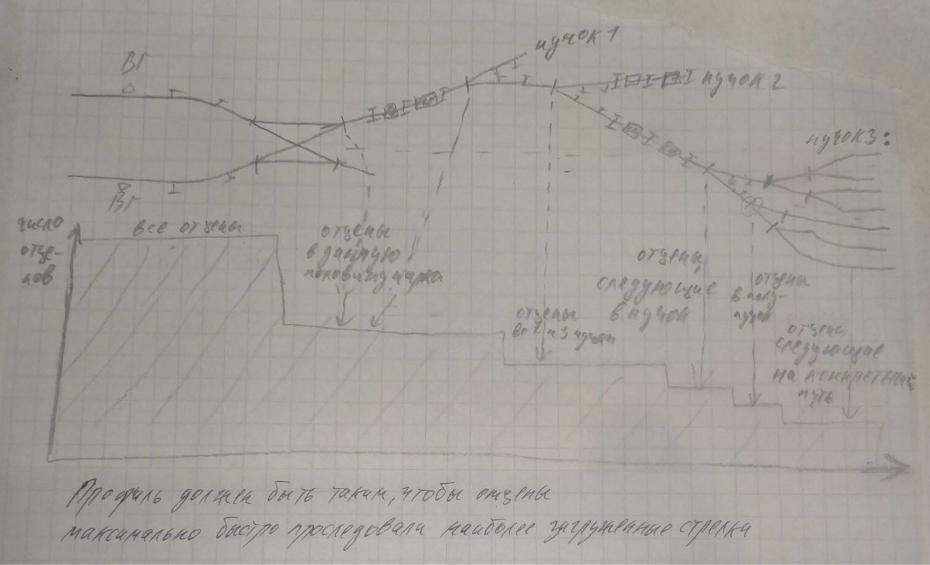 пучок 1
ВГ
пучок 2
пучок 3:
ВГ
число
отце-
пов
все отцепы
отцепы
в данную
половину парка
отцепы
во 2 и 3 пучки
отцепы,
следующие
в пучок
отцепы
в полу-
пучок
отцепы,
следующие
на конкретный
путь
Профиль должен быть таким, чтобы отцепы
максимально быстро проследовали наиболее загруженные стрелки